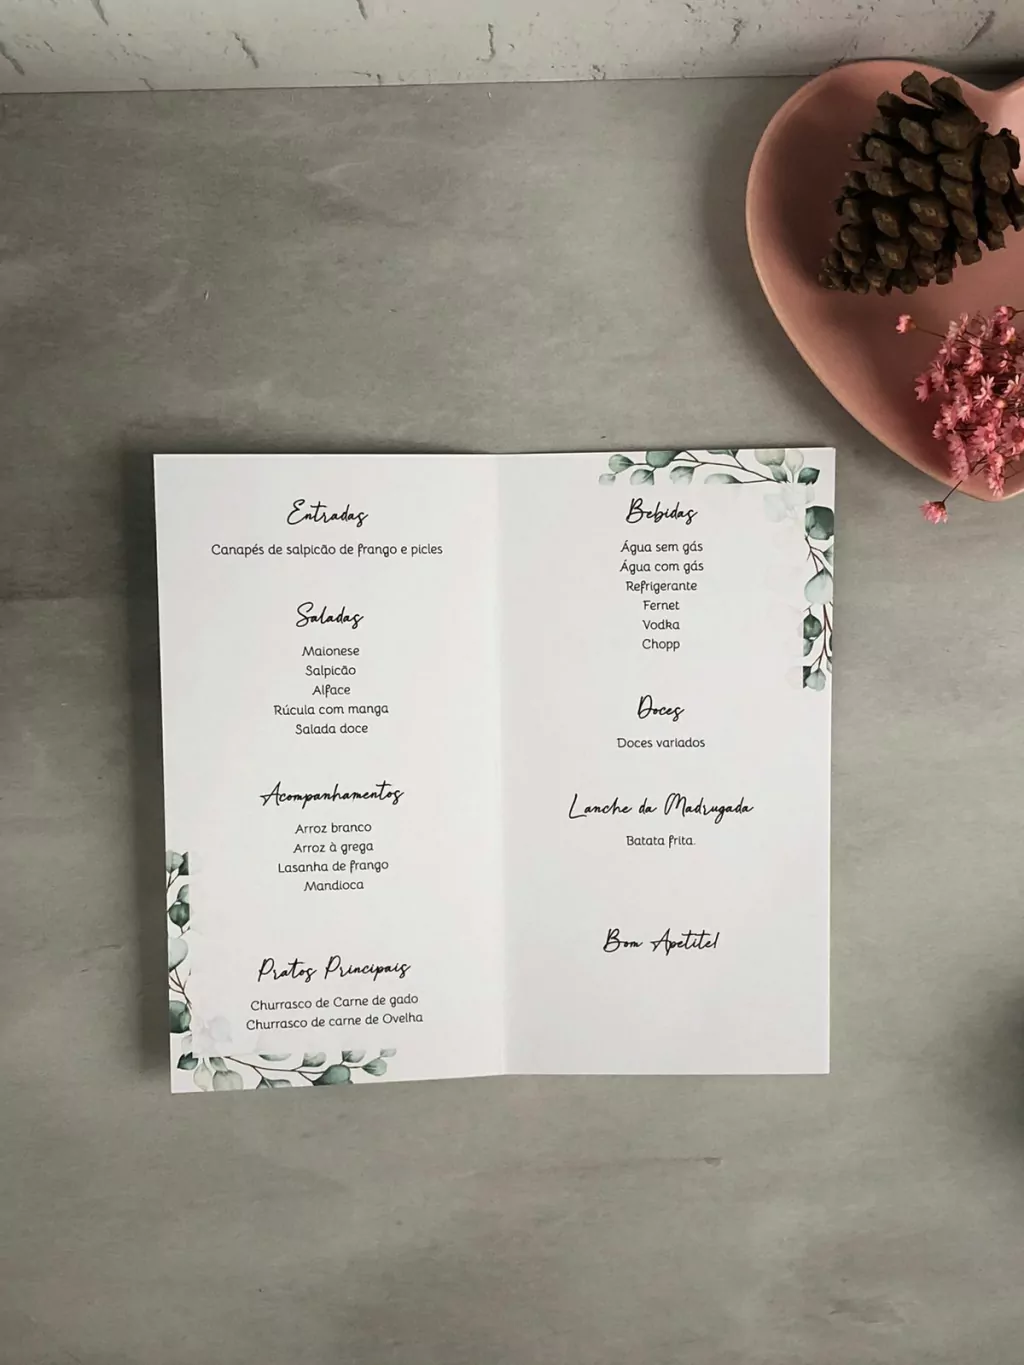 Entradas
Canapés de salpicão de frango e picles
Saladas
Maionese
Salpicão
Alface
Rúcula com manga
Salada doce
Acompanhamentos
Arroz branco
Arroz à grega
Lasanha de frango
Mandioca
Pratos Principais
Churrasco de Carne de gado
Churrasco de carne de Ovelha
Bebidas
Água sem gás
Água com gás
Refrigerante
Fernet
Vodka
Chopp
Doces
Doces variados
Lanche da Madrugada
Batata frita.
Bom Apetite!